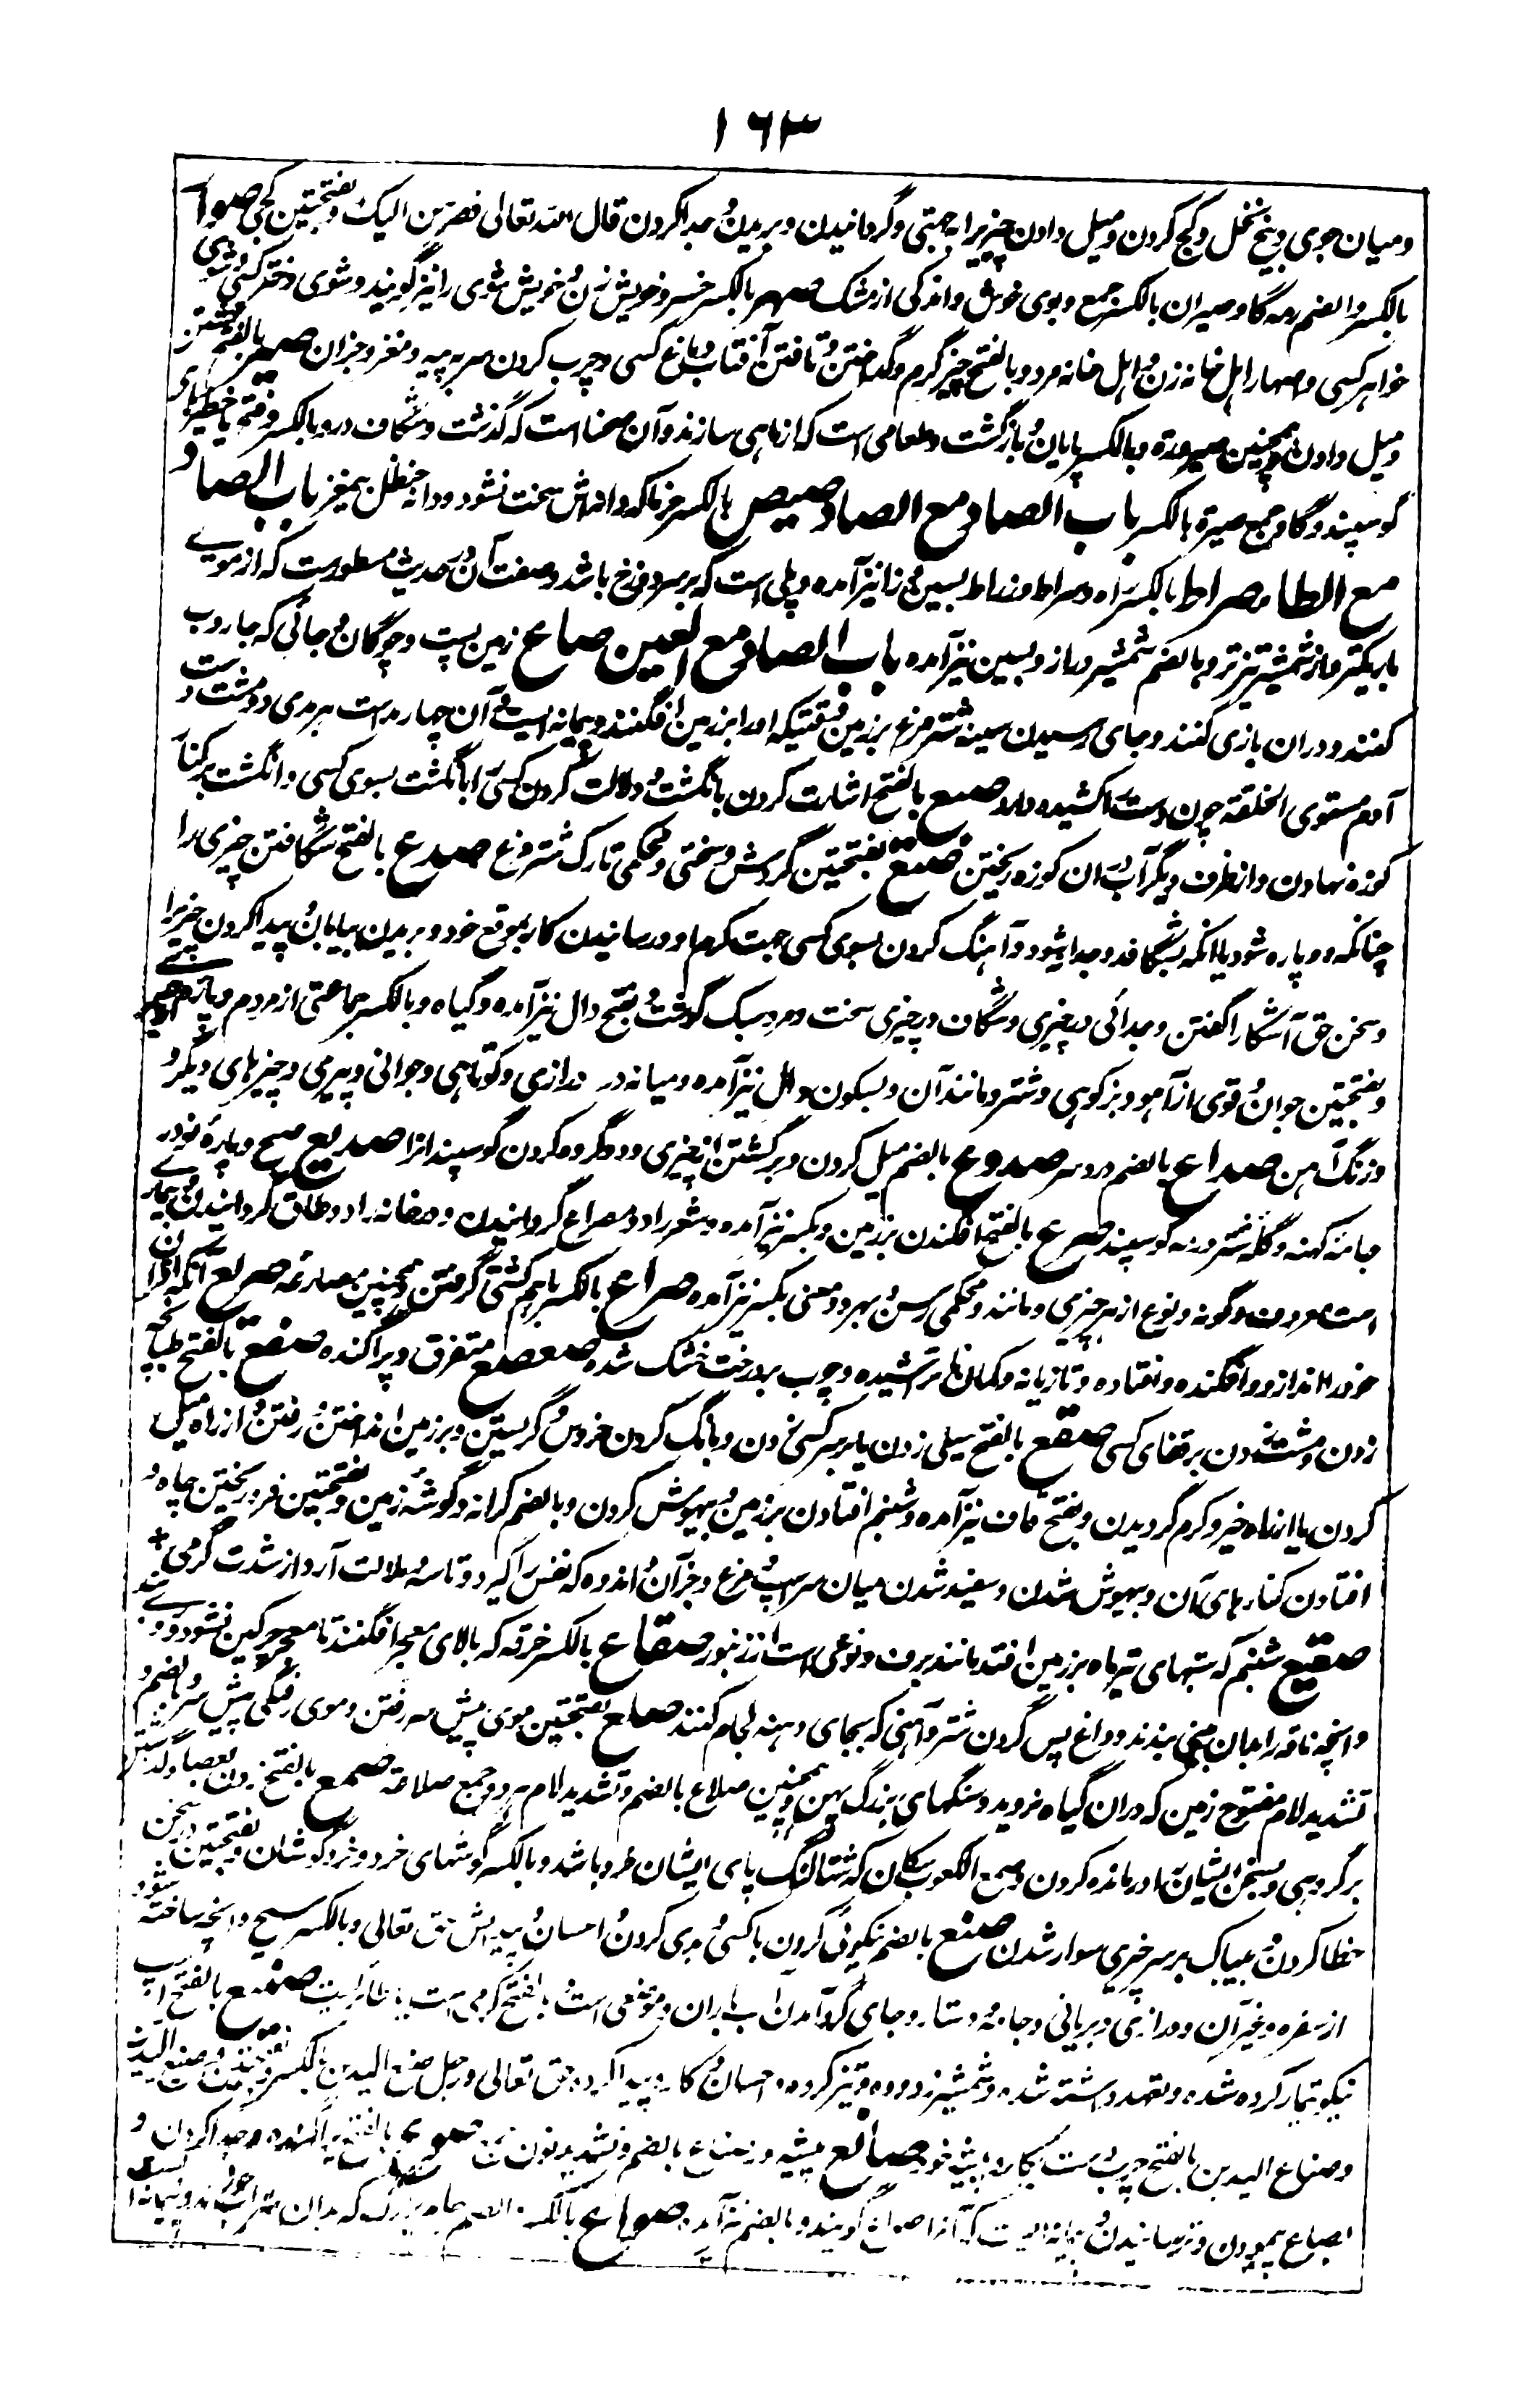 ۱۶۳
و میان جوی و بیخ نخل و کج کردن و میل دادن چیزیرا به جهتی و گردانیدن و بریدن و جدا کردن قال الله تعالی فصرهن الیک و بفتحتین کجی صوار
بالکسر والضم رمه گاو صیران بالکسر جمع و بوی خوش و اندکی از مشک صهر بالکسر خسر و خویش زن و خویش شوی را نیز گویند و شوی دختر کسی و شوی
خواهر کسی و اصهار اهل خانه زن و اهل خانه مرد و بالفتح چیز گرم و گداختن و تافتن آفتاب دماغ کسی و چرب کردن سر به پیه و مغز و جزان صیر بالفتح گشتن
و میل دادن و همچنین صیرورة و بالکسر پایان و بازگشت و طعامی است که از ماهی سازند و آن صحنا است که گذشت و شگاف در و بالکسر و فتح یا خطیرهای
گوسپند و گاو جمع صیرة بالکسر باب الصاد مع الصاد صیص بالکسر خرما که دانه اش سخت نشود و دانه حنظل بیمغز باب الصاد
مع الطاء صراط بالکسر راه و سراط و زراط بسین و زا نیز آمده و پلی است که بر سر دوزخ باشد و صفت آن در حدیث مسطورست که از موے
باریکتر و از شمشیر تیزتر و بالضم شمشیر دراز و بسین نیز آمده باب الصاد مع العین صاع زمین پست و چوگان و جائی که جاروب
کنند و دران بازی کنند و جای رسیدن سینه شترمرغ بر زمین وقتیکه او را بر زمین افگند و پیمانه ایست و آن چهار مدست هر مدی دو مشت
آدم مستوی الخلقه چون دست کشیده دارد صبع بالفتح اشارت کردن بانگشت و دلالت کردن کسی را بانگشت بسوی کسی و انگشت بر کنار
کوزه نهادن و از ظرف دیگر آب دران کوزه ریختن صتع بفتحتین گردش و سختی و محکمی تارک شترمرغ صدع بالفتح شگافتن چیزی را
چنانکه دو پاره شود یا آنکه بشگافد و جدا نشود و آهنگ کردن بسوی کسی جهت کرم او و رسانیدن کار بموقع خود و بریدن بیابان و پیدا کردن چیزیرا
و سخن حق آشکارا گفتن و جدائی در چیزی و شگاف در چیزی سخت و مرد سبک گوشت و بفتح دال نیز آمده و گیاه و بالکسر جماعتی از مردم و پاره
و بفتحتین جوان قوی از آهو و بز کوهی و شتر و مانند آن و بسکون دال نیز آمده و میانه در درازی و کوتاهی و جوانی و پیری و چیزهای دیگر و
و زنگ آهن صداع بالضم درد سر صدوع بالضم میل کردن و برگشتن از چیزی و دو گروه کردن گوسپندانرا صدیع صبح و پاره نو در
جامه کهنه و گله شتر و رمه گوسپند صرع بالفتح افگندن بر زمین و بکسر نیز آمده و شعر را دو مصراع گردانیدن و در خانه را دو طاق گردانیدن و بیماری
است معروف و گونه و نوع از هر چیزی و مانند و محکمی رسن و بهر دو معنی بکسر نیز آمده صراع بالکسر باهم کشتی گرفتن و همچنین مصارعه صریع آنکه اقران
خود را اندازد و افگنده و افتاده و تازیانه و کمان نا تراشیده و چوب بر درخت خشک شده صعصع متفرق و پراگنده صفع بالفتح طپانچه
زدن و مشت زدن بر قفای کسی صقع بالفتح سیلی زدن یا بر سر کسی زدن و بانگ کردن خروس و گریستن و بر زمین انداختن و رفتن و از راه میل
کردن یا از راه خیر و کرم گردیدن و بفتح قاف نیز آمده و شبنم افتادن بر زمین و بیهوش کردن و بالضم کرانه و گوشهٔ زمین و بفتحتین فرو ریختن چاه و
افتادن کنارهای آن و بیهوش شدن و سفید شدن میان سر اسپ و مرغ و جز آن و اندوه که نفس را گیرد و تاسه و ملالت آرد از شدت گرمی
صقیع شبنم که شبهای تیر ماه بر زمین افتد مانند برف و نوعی است از زنبور صقاع بالکسر خرقه که بالای معجر افگنند تا معجر چرکین نشود و
و انچه ناقه را بدان بینی بندند و داغ پس گردن شتر و آهنی که بجای دهنه لجام کنند صلع بفتحتین موی پیش سر رفتن و موی رفتگی پیش سر و بالضم و
تشدید لام مفتوح زمین که دران گیاه نروید و سنگهای بزرگ پهن و همچنین صلاع بالضم و تشدید لام هر دو جمع صلاعة صمع بالفتح زدن بعصا و گذشتن
بر گروهی و بسخن ایشان را درمانده کردن و صمع الکعوب سگان که شتالنگ پای ایشان خرد باشد و بالکسر گوشهای خرد و خرد گوشان و بفتحتین در سخن
خطا کردن و بیباک بر سر چیزی سوار شدن صنع بالضم نیکوئی کردن با کسی و بدی کردن و احسان و پیدایش حق تعالی و بالکسر سیخ و انچه ساخته شود
از سفره و غیر آن و درازی و بریانی و جامه و دستار و جای گرد آمدن آب باران و موضعی است و بالفتح کرمی است یا طائریست صنیع بالفتح اسپ
نیکو تیمار کرده شده و تعهد داشته شده و شمشیر زدوده و تیز کرده و احسان و کار و پیدا کرده حق تعالی و رجل صنع الیدین بالکسر و بفتحتین و صنیع الیدین
و صناع الیدین بالفتح چرب دست بکار و پیشه خود صانع پیشه ور صناع بالضم و تشدید نون جمع صوع بالفتح پراگنده و جدا کردن و
بصاع پیمودن و ترسانیدن و پیمانه ایست که آنرا صواع گویند و بالضم نیز آمده صواع بالکسر و الضم جام بزرگ که بدان شراب خورند و پیمانه